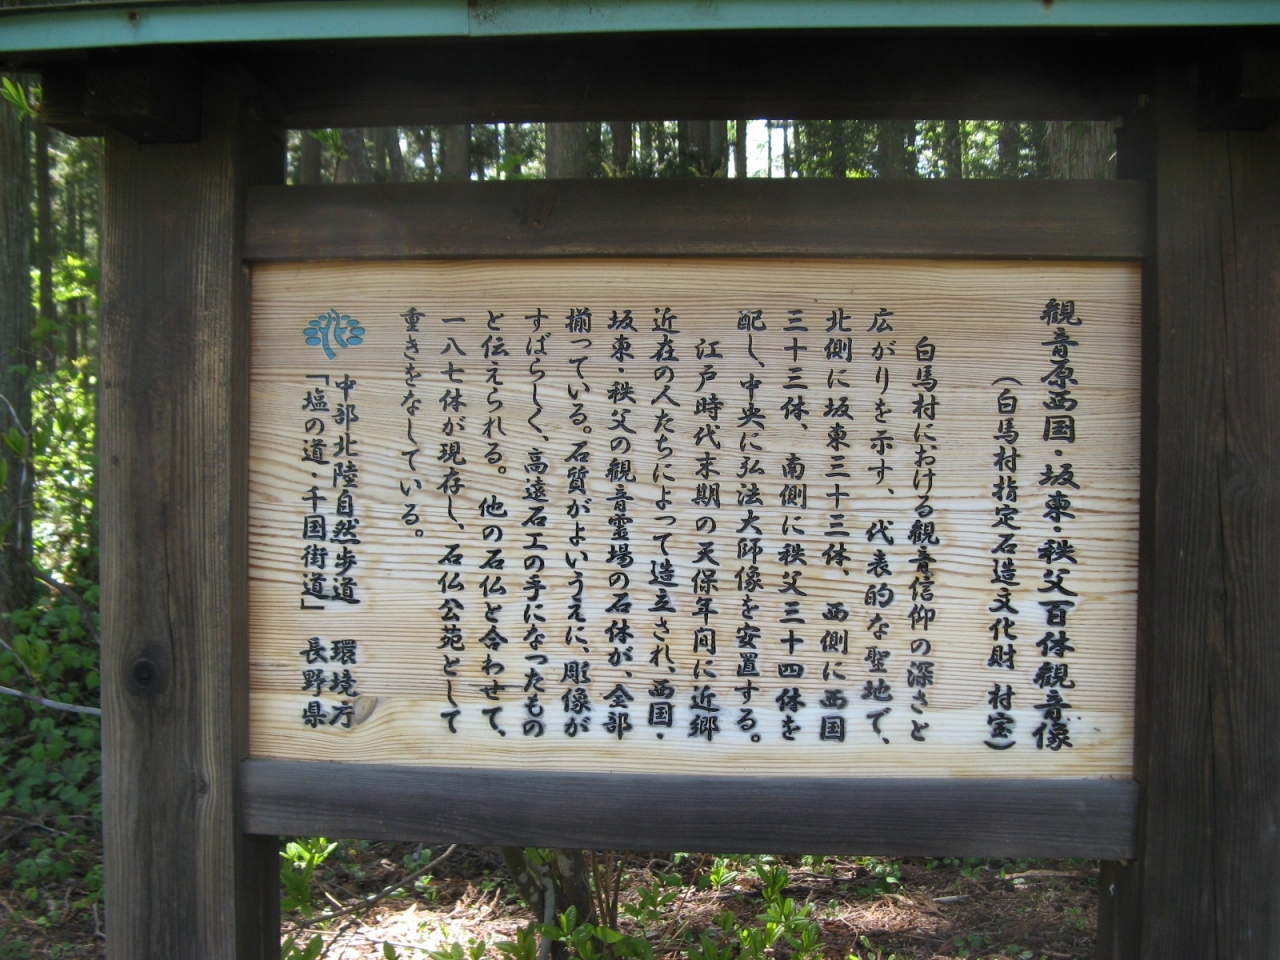 観音原西国・坂東・秩父百体観音像
（白馬村指定石造文化財　村宝）
白馬村における観音信仰の深さと
広がりを示す、代表的な聖地で、
北側に坂東三十三体、西側に西国
三十三体、南側に秩父三十四体を
配し、中央に弘法大師像を安置する。
江戸時代末期の天保年間に近郷
近在の人たちによって造立され、西国・
坂東・秩父の観音霊場の石体が、全部
揃っている。石質がよいうえに、彫像が
すばらしく、高遠石工の手になったもの
と伝えられる。他の石仏と合わせて、
一八七体が現存し、石仏公苑として
重きをなしている。
中部北陸自然歩道　環境庁
「塩の道・千国街道」　長野県